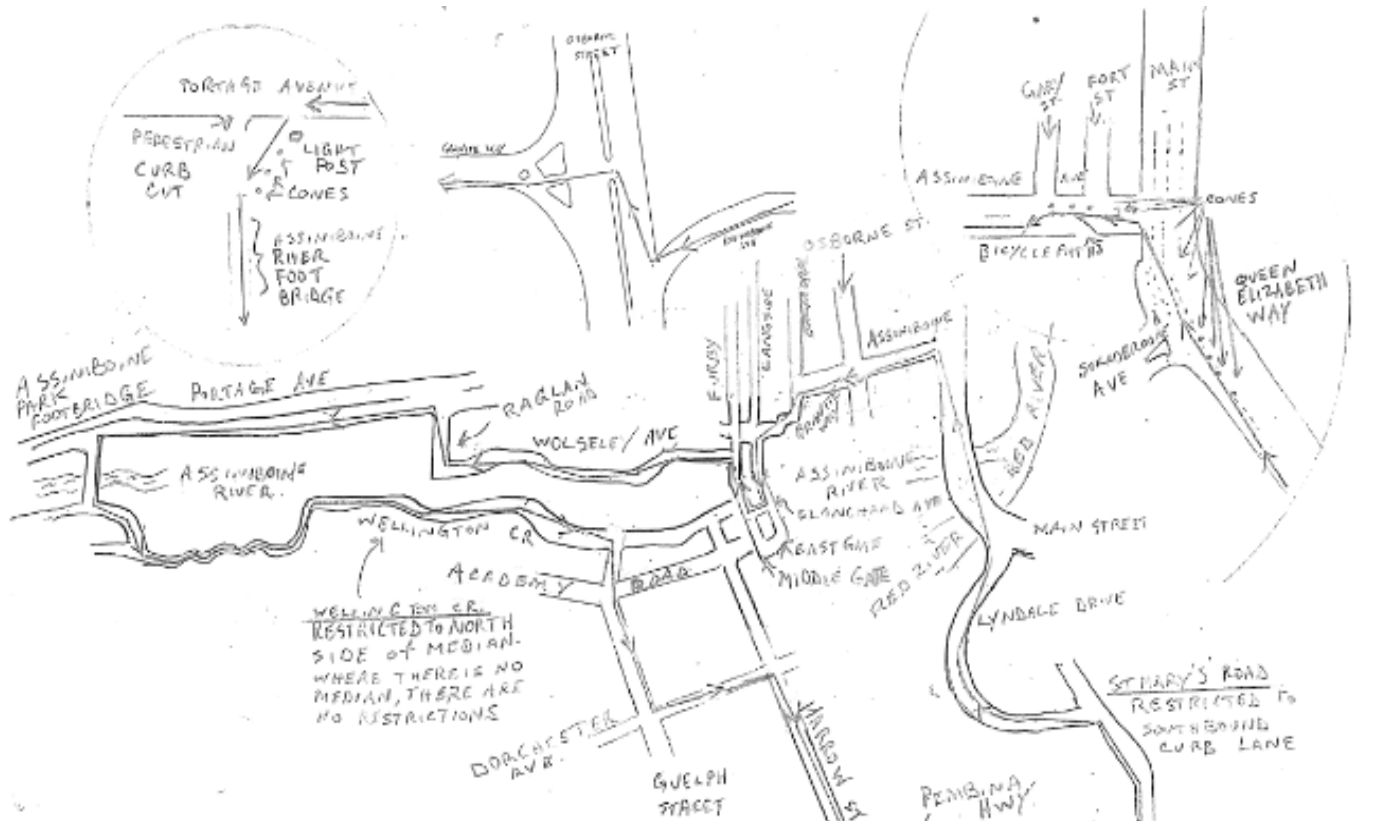 PORTAGE AVENUE
PEDESTRIAN
CURB
CUT
LIGHT
POST
CONES
ASSINIBOINE
RIVER
FOOT
BRIDGE
OSBORNE
STREET
GREY
ST.
FORT
ST
MAIN
ST
ASSINIBOINE AVE
CONES
BICYCLE PATHS
QUEEN
ELIZABETH
WAY
AVE
ASSINIBOINE
PARK
FOOTBRIDGE
PORTAGE AVE
RAGLAN
ROAD
WOLSELEY AVE
ASSINIBOINE
RIVER.
FURBY
LANGSIDE
OSBORNE ST.
ASSINIBOINE
RED RIVER
ASSINIBOINE
RIVER
BLANCHARD AVE
EAST GATE
MIDDLE GATE
RED RIVER
MAIN STREET
LYNDALE DRIVE
WELLINGTON CR
ACADEMY ROAD
WELLINGTON CR.
RESTRICTED TO NORTH
SIDE of MEDIAN.
WHERE THERE IS NO
MEDIAN, THERE ARE
NO RESTRICTIONS
DORCHESTER
AVE.
GUELPH
STREET
HARROW ST
PEMBINA
HWY
ST MARY'S ROAD
RESTRICTED TO
SOUTHBOUND
CURB LANE